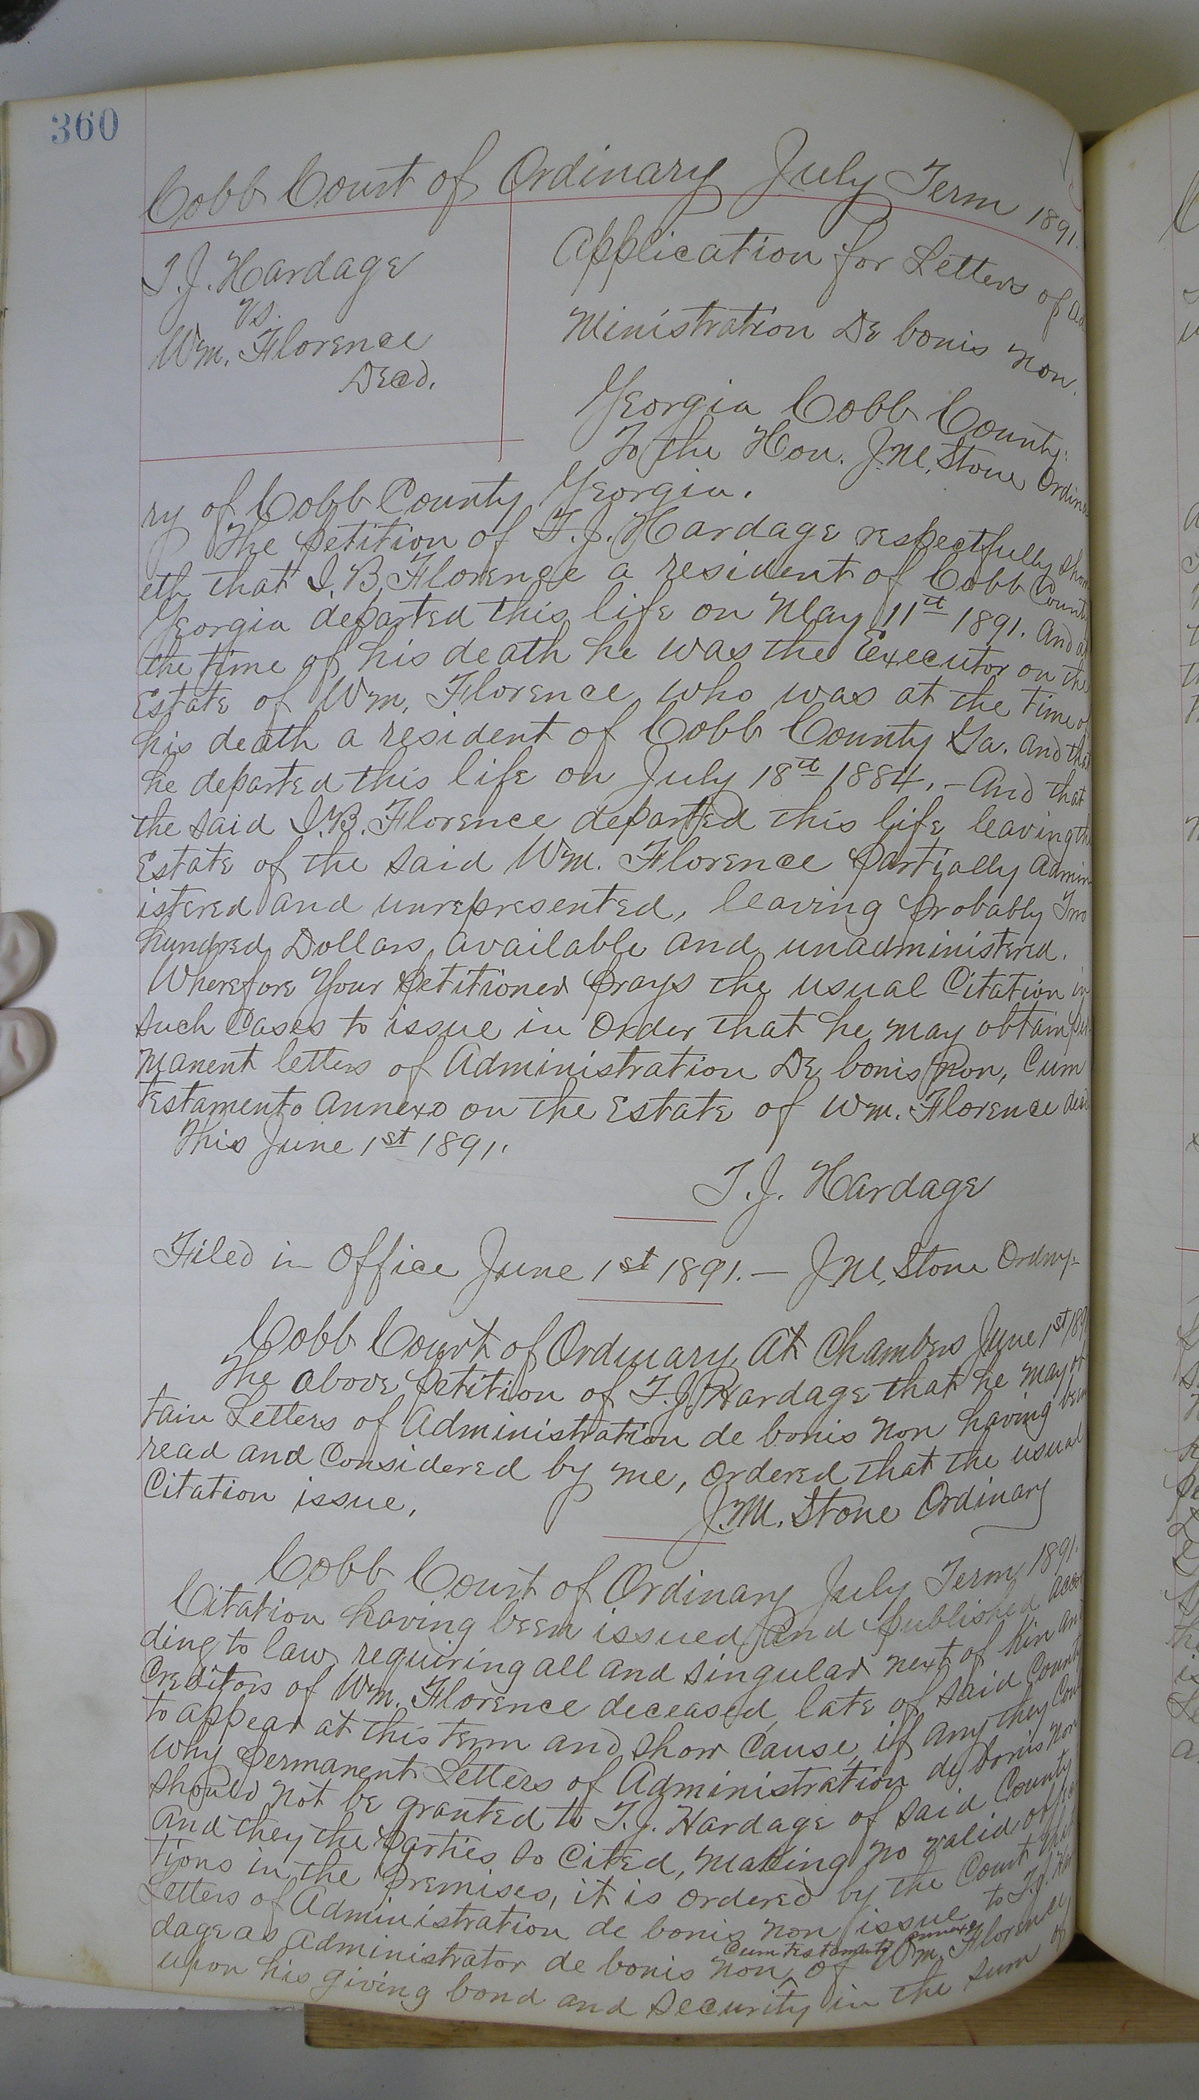 360
Cobb Court of Ordinary July Term 1891.
T. J. Hardage
vs.
Wm. Florence
Decd.
Application for Letters of Ad
ministration De bonis non.
Georgia Cobb County:
To the Hon. J.M. Stone Ordina
ry of Cobb County Georgia.
The petition of T. J. Hardage respectfully show
eth that I. B. Florence a resident of Cobb County
Georgia departed this life on May 11th 1891. And at
the time of his death he was the Executor on the
Estate of Wm. Florence who was at the time of
his death a resident of Cobb County Ga. and that
he departed this life on July 18th 1884. - And that
the said I. B. Florence departed this life leaving the
Estate of the said Wm. Florence partially admin
istered and unrepresented, leaving probably Two
hundred Dollars available and unadministered.
Wherefore Your petitioner prays the usual Citation in
such Cases to issue in order that he may obtain per
manent letters of Administration De bonis non, Cum
testamento annexo on the Estate of Wm. Florence decd
This June 1st 1891.
T. J. Hardage
Filed in Office June 1st 1891. - J M. Stone Ordny-
Cobb Court of Ordinary At Chambers June 1st 189
The above petition of T. J. Hardage that he may ob
tain Letters of Administration de bonis non having been
read and Considered by me, ordered that the usual
Citation issue.
J. M. Stone Ordinary
Cobb Court of Ordinary July Term 1891.
Citation having been issued and published accor
ding to law requiring all and singular next of kin and
Creditors of Wm. Florence deceased, late of said County
to appear at this term and show Cause, if any they Can
why permanent Letters of Administration de bonis non
should not be granted to T. J. Hardage of said County
And they the parties so Cited, making no valid objec
tions in the premises, it is ordered by the Court that
Letters of Administration de bonis non issue to T. J. Har
dage as Administrator de bonis non Cum testamento annexo of Wm. Florence
upon his giving bond and security in the sum of